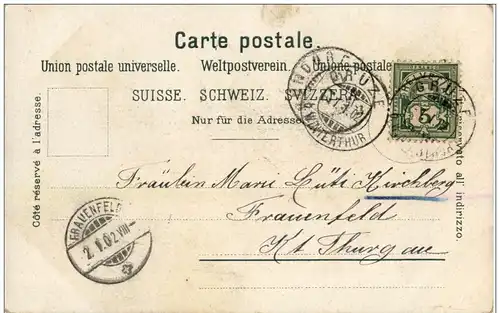 Carte postale.
Union postale universelle. Weltpostverein. Unione postale
SUISSE. SCHWEIZ. SVIZZERA.
Nur für die Adresse
Côté réservé à l'adresse.
all' indirizzo.
GRÜZE
WINTERTHUR
GRÜZE
5
Fräulein Marie Lüti Kirchberg
Frauenfeld
Kt. Thurgau
FRAUENFELD
2.I.02.VIII-